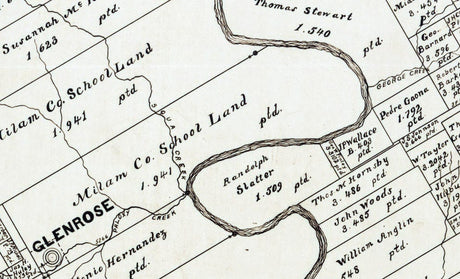 Thomas Stewart
1.540
ptd.
Susannah Mc
1 623
ptd
Milam Co. School Land
1.941
ptd
Milam Co. School Land
1.941
ptd.
SQUAW CREEK
GEORGE CREEK
Geo.
Barnard
3.596
ptd.
Robert
Pedro Gaona
1.792
ptd
J P Wallace
B. 403
ptd
Randolph
Slatter
1.509 ptd.
Thos M Hornsby
3. 486 ptd.
John Woods
3.485 ptd.
William Anglin
ptd.
W Taylor
PALUXY
CREEK
GLENROSE
Hernandez
ptd.